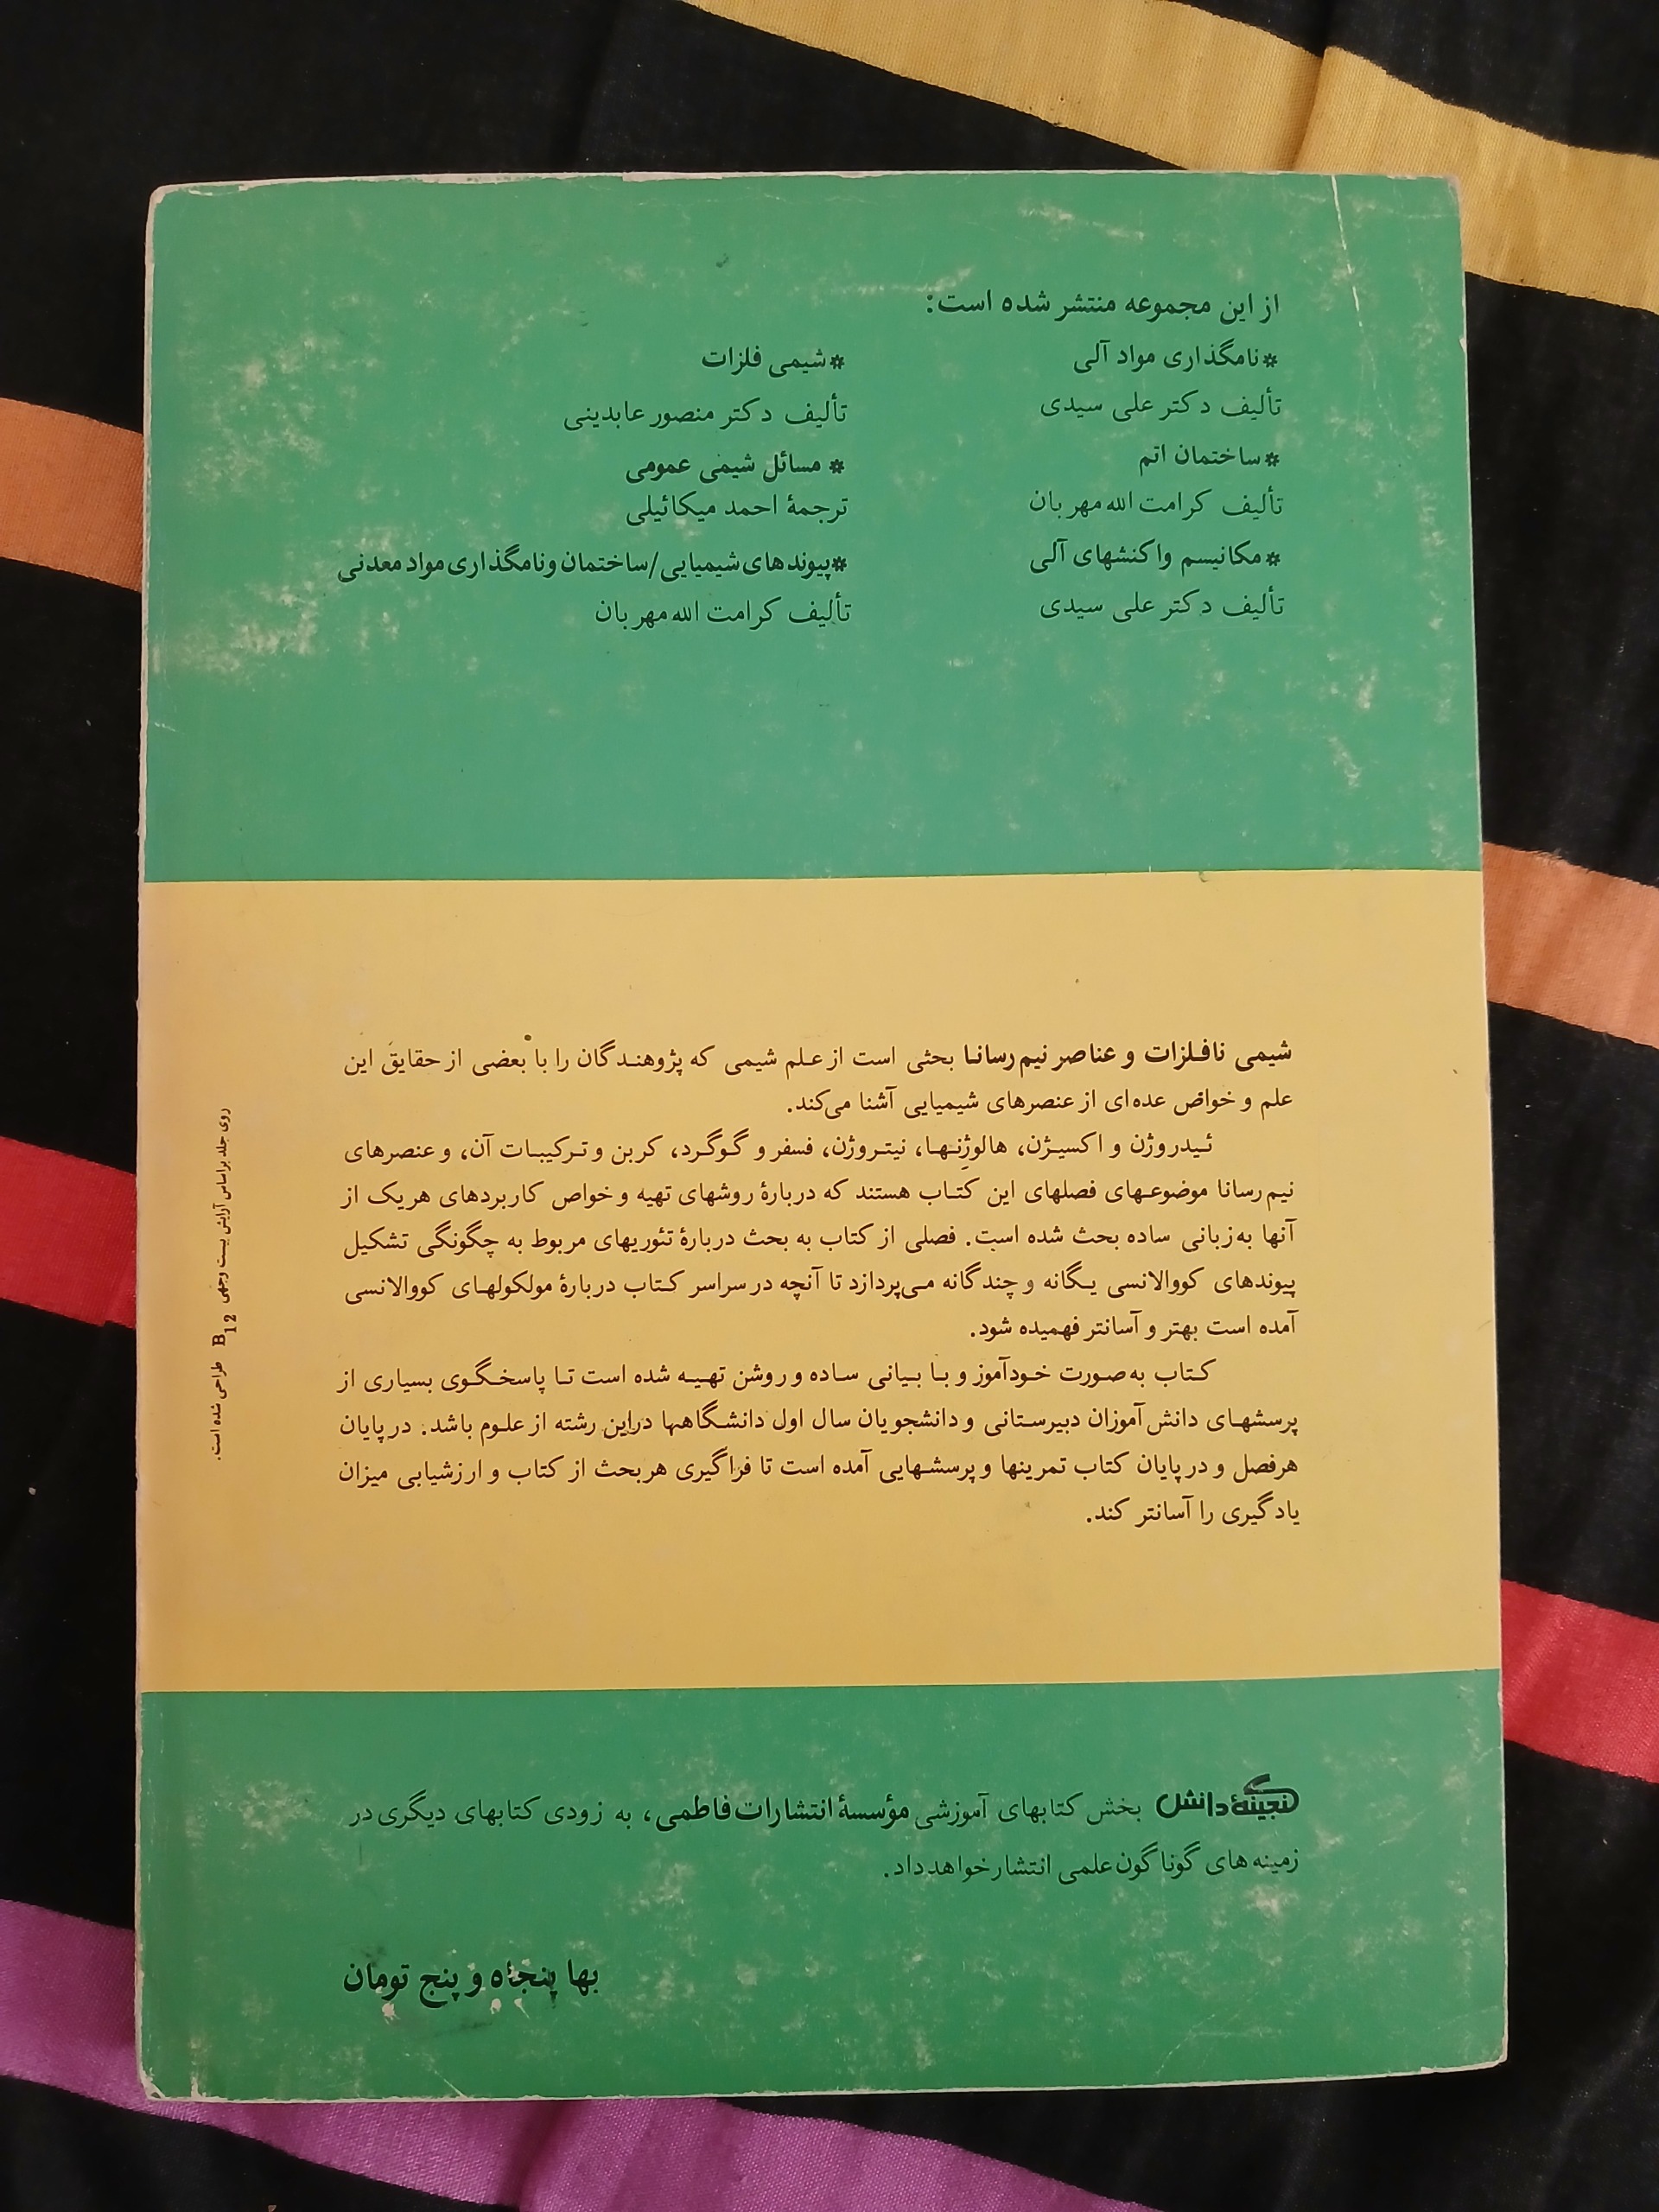 از این مجموعه منتشر شده است:
*نامگذاری مواد آلی
تألیف دکتر علی سیدی
*ساختمان اتم
تألیف کرامت الله مهربان
*مکانیسم واکنشهای آلی
تألیف دکتر علی سیدی
*شیمی فلزات
تألیف دکتر منصور عابدینی
* مسائل شیمی عمومی
ترجمهٔ احمد میکائیلی
*پیوندهای شیمیایی/ساختمان و نامگذاری مواد معدنی
تألیف کرامت الله مهربان
شیمی نافلزات و عناصر نیم‌رسانا بحثی است از علم شیمی که پژوهندگان را با بعضی از حقایق این
علم و خواص عده‌ای از عنصرهای شیمیایی آشنا می‌کند.
ئیدروژن و اکسیژن، هالوژنها، نیتروژن، فسفر و گوگرد، کربن و ترکیبات آن، و عنصرهای
نیم‌رسانا موضوعهای فصلهای این کتاب هستند که دربارهٔ روشهای تهیه و خواص کاربردهای هریک از
آنها به‌زبانی ساده بحث شده است. فصلی از کتاب به بحث دربارهٔ تئوریهای مربوط به چگونگی تشکیل
پیوندهای کووالانسی یگانه و چندگانه می‌پردازد تا آنچه در سراسر کتاب دربارهٔ مولکولهای کووالانسی
آمده است بهتر و آسانتر فهمیده شود.
کتاب به‌صورت خودآموز و با بیانی ساده و روشن تهیه شده است تا پاسخگوی بسیاری از
پرسشهای دانش‌آموزان دبیرستانی و دانشجویان سال اول دانشگاهها دراین رشته از علوم باشد. در پایان
هرفصل و در پایان کتاب تمرینها و پرسشهایی آمده است تا فراگیری هر بحث از کتاب و ارزشیابی میزان
یادگیری را آسانتر کند.
روی جلد براساس آرایش بیست وجهی B12 طراحی شده است.
گنجینهٔ دانش بخش کتابهای آموزشی مؤسسهٔ انتشارات فاطمی، به زودی کتابهای دیگری در
زمینه‌های گوناگون علمی انتشار خواهد داد.
بها پنجاه و پنج تومان